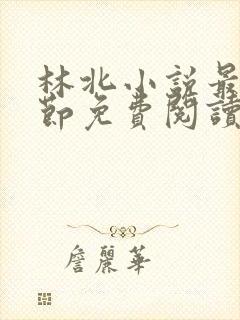 林北小說最
節免費閱讀
詹麗華